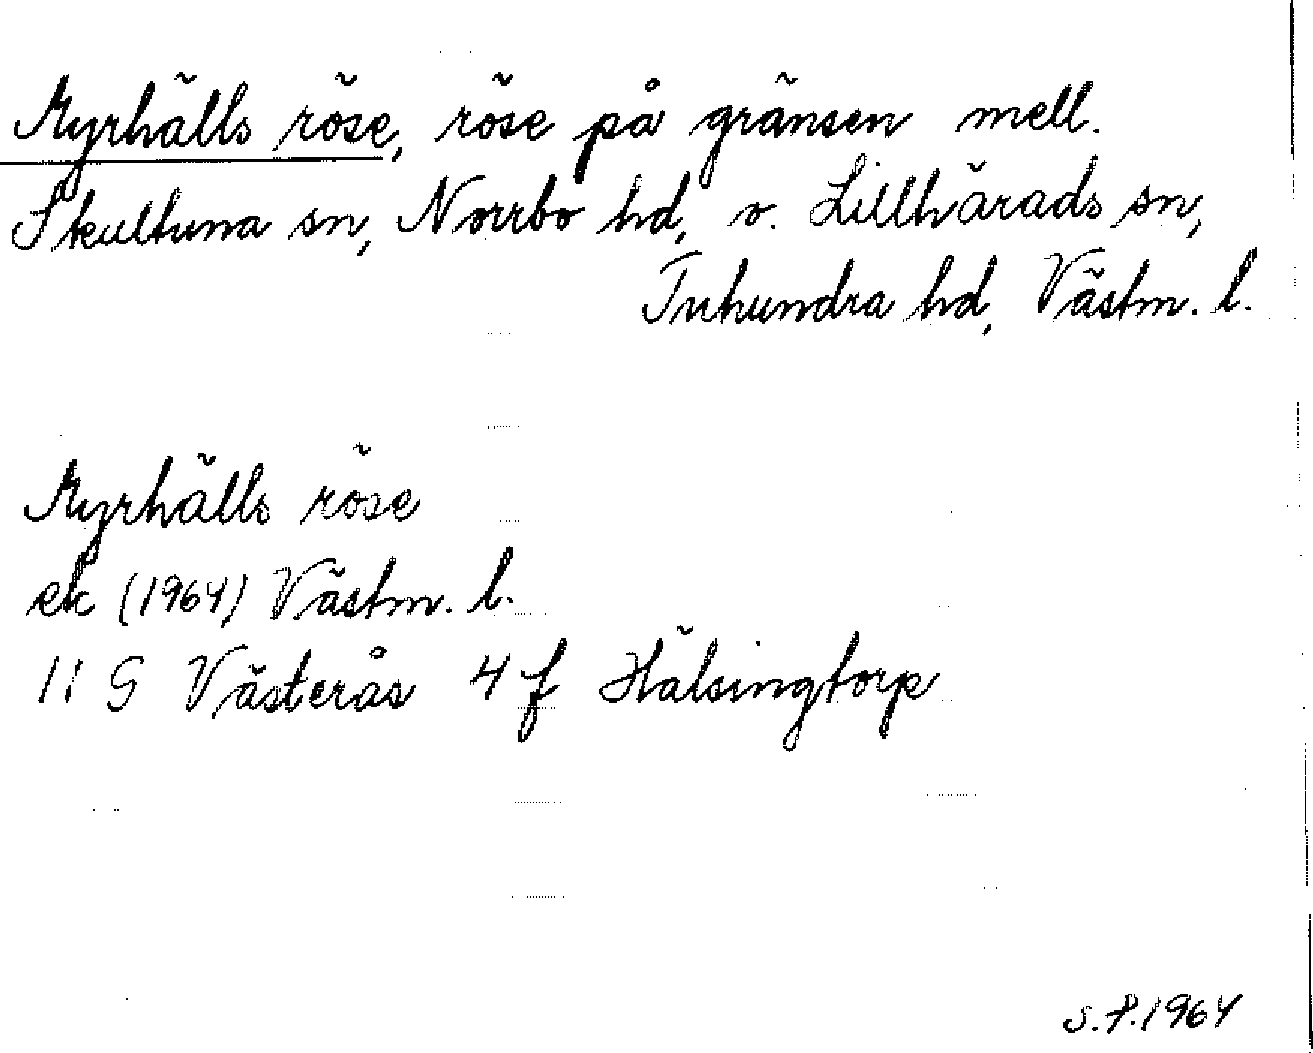 Myrhälls röse, röse på gränsen mell.
Skultuna sn, Norrbo hd, o. Lillhärads sn,
Tuhundra hd, Västm. l.
Myrhälls röse
ek (1964) Västm. l.
11 G Västerås 4 f Hälsingtorp
S.P.1964